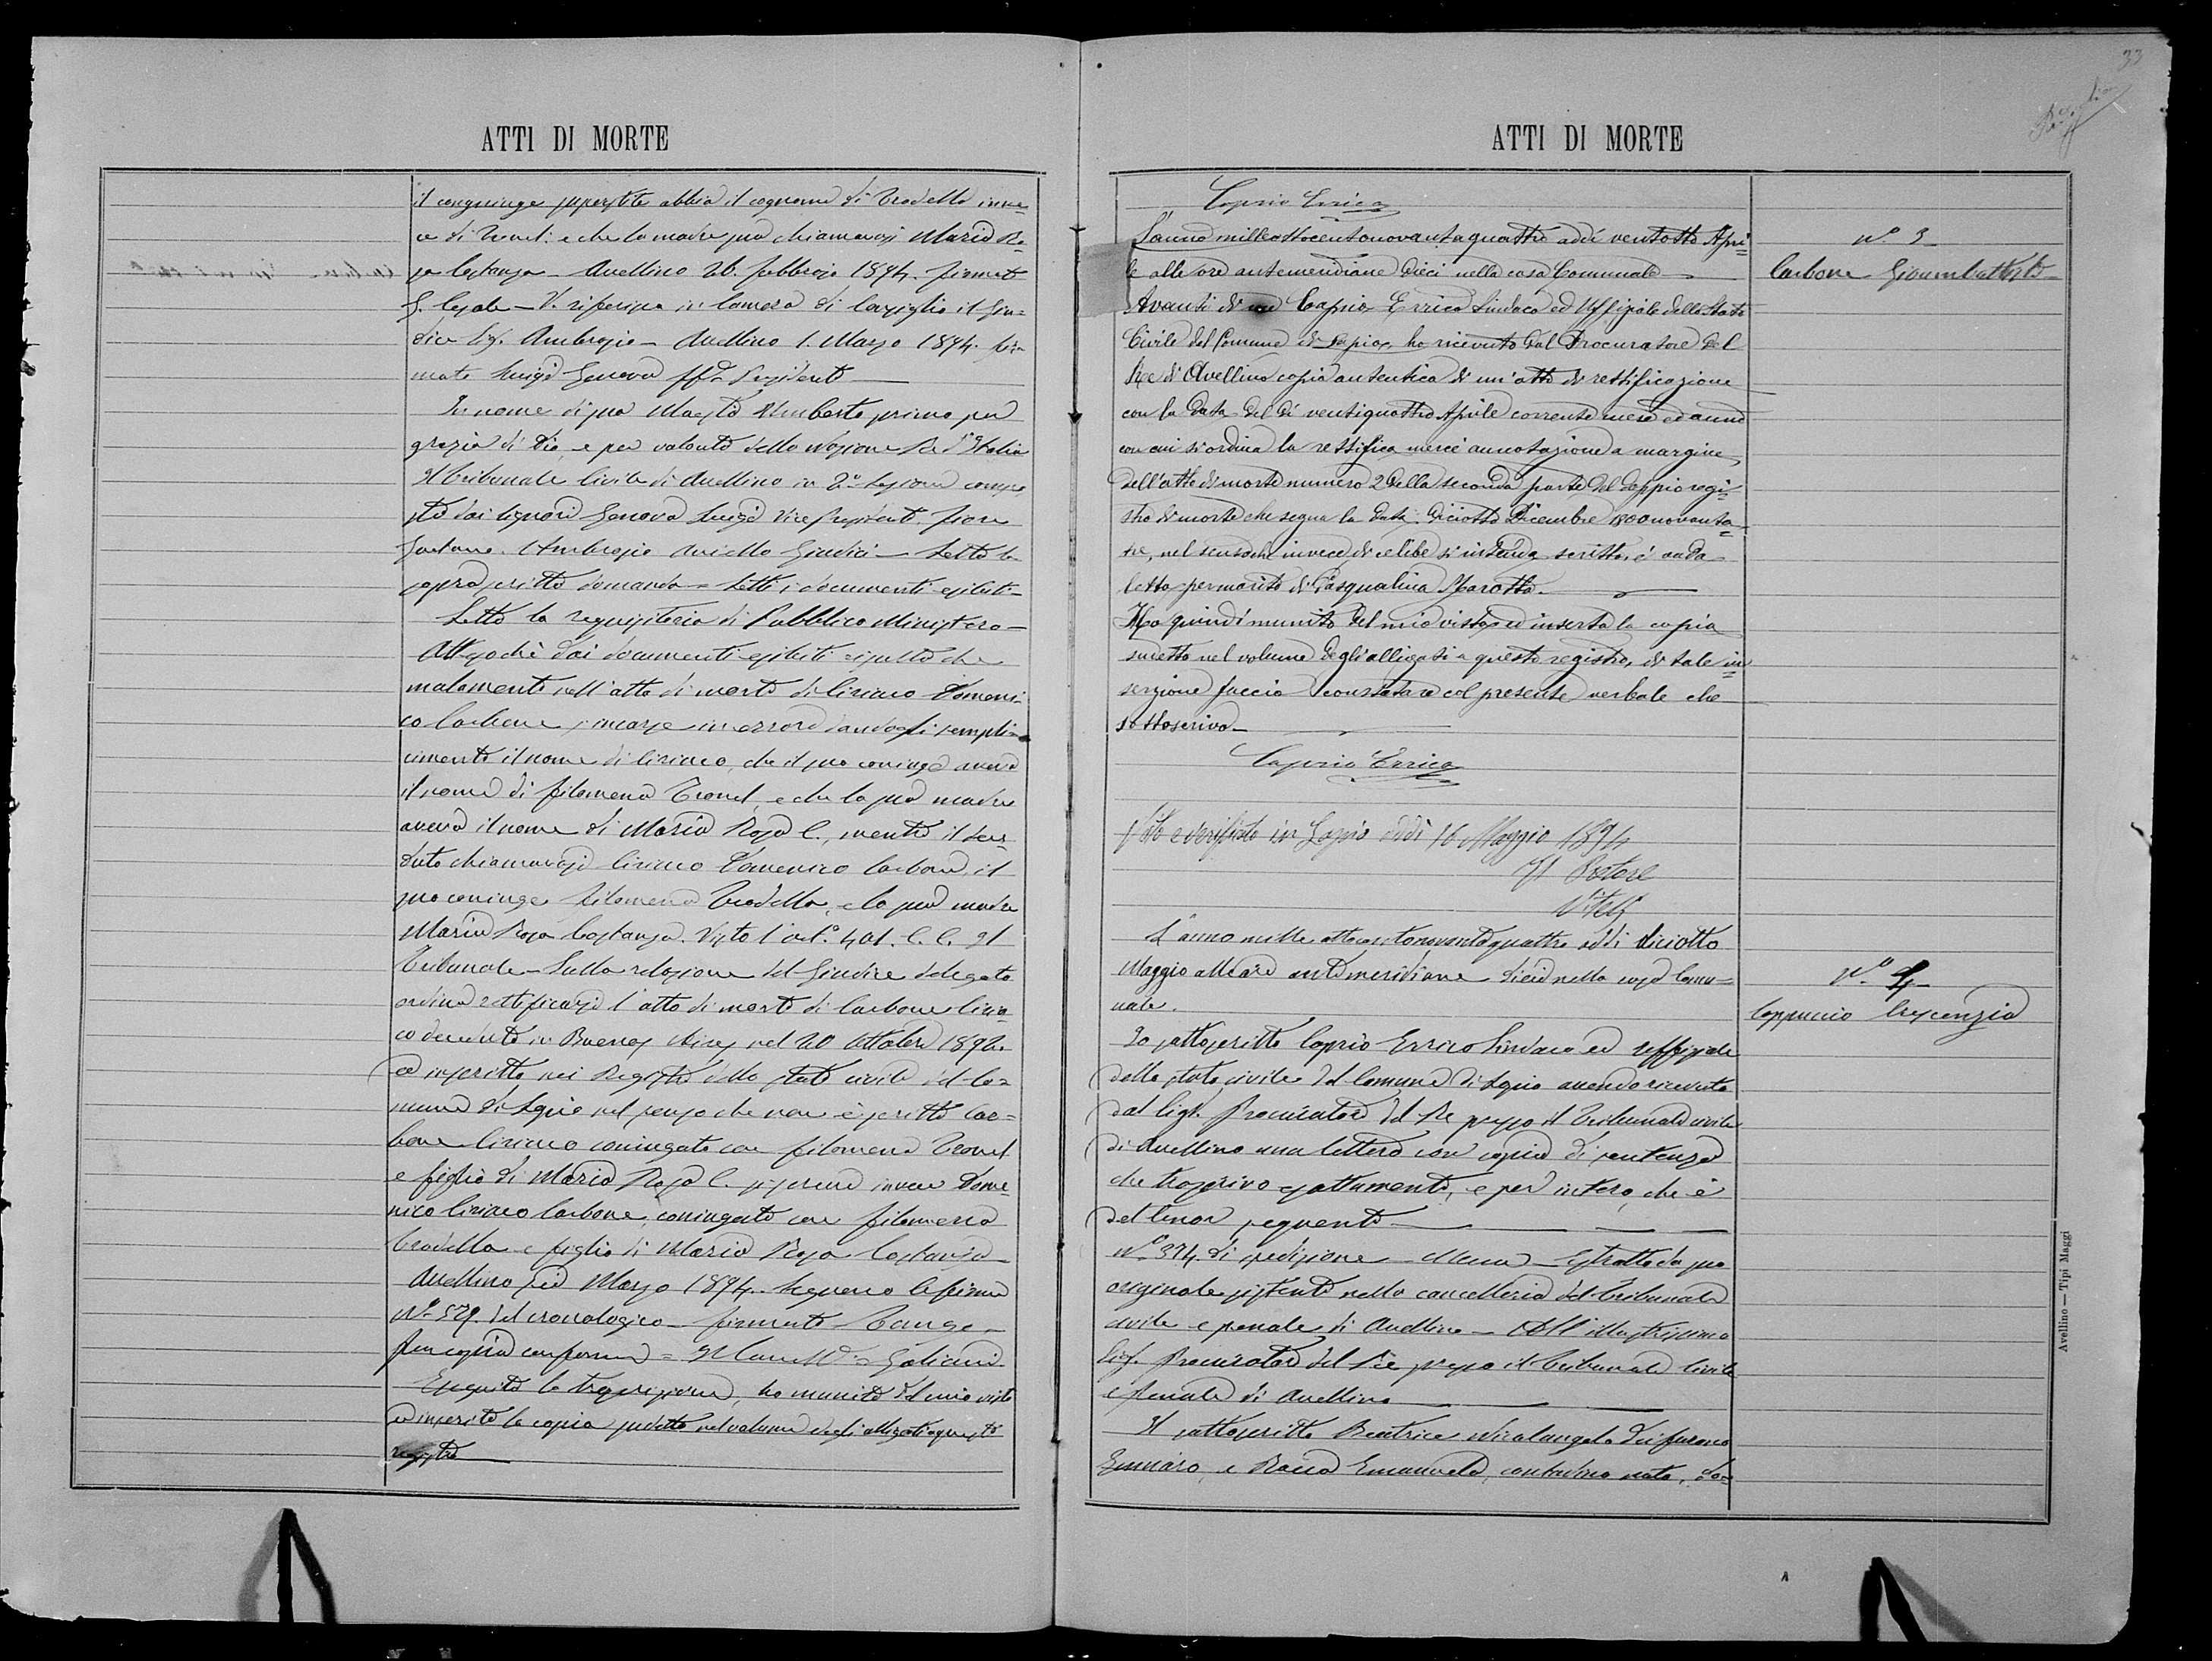 ATTI DI MORTE
il conguinge superstite abbia il cognome di Tradello inve=
ce di Tronel: e che la madre sua chiamavasi Maria Ro=
sa Costanza - Avellino 26. febbraio 1894. firmato
G. Cesale - V. riferisca in Camera di Consiglio il Giu=
dice Sig. Ambrogio - Avellino 1. Marzo 1894. fir=
mato Luigi Genova ff. Presidente
In nome di sua Maestà Umberto primo per
grazia di Dio, e per volontà della Nazione Re d'Italia
Il Tribunale Civile di Avellino in 2a Sezione compo
sto dai Signori Genova Luigi Vice presidente, fiore
Gaetano. Ambrogio Aniello Giudici - Letta la
soprascritta domanda = Letti i documenti esibiti -
Letta la requisitoria di Pubblico Ministero -
Attesochè dai documenti esibiti risulta che
malamente nell'atto di morte di Ciriaco Domeni=
co Carbone s'incorse in errore dandogli sempli=
cemente il nome di Ciriaco, che il suo coniuge aveva
il nome di filomena Tronel, e che la sua madre
aveva il nome di Maria Rosa C., mentre il dece=
duto chiamavasi Ciriaco Domenico Carbone, il
suo coniuge filomena Tradella, e la sua madre
Maria Rosa Costanza. Visto l'art.o 401. C. C. Il
Tribunale - Sulla relazione del Giudice delegato
ordina rettificarsi l'atto di morte di Carbone Ciria=
co deceduto in Buenos Aires nel 20 Ottobre 1892.
ed inscritto nei Registri dello stato civile del Co=
mune di Lapio nel senso che non è scritto Car=
bone Ciriaco coniugato con filomena Tronel
e figlio di Maria Rosa C. invece Dome=
nico Ciriaco Carbone, coniugato con filomena
Tradella e figlio di Maria Rosa Costanza -
Avellino sei Marzo 1894. Seguono le firme
No 579. del cronologico - firmato
Per copia conforme = Il Galiani
Eseguita la trascrizione, ho munito del mio visto
ed inserito la copia sudetta nel volume degli allegati a questo
registro
33
ATTI DI MORTE
Caprio Errico
L'anno milleottocentonovantaquattro addì ventotto Apri=
le alle ore antemeridiane dieci nella casa Comunale
Avanti di me Caprio Errico Sindaco ed Uffiziale dello Stato
Civile del Comune di Lapio, ho ricevuto dal Procuratore del
Re di Avellino copia autentica di un'atto di rettificazione
con la data del dì ventiquattro Aprile corrente mese ed anno
con cui si ordina la rettifica mercè annotazione a margine,
dell'atto di morte numero 2 della seconda parte del doppio regi=
stro di morte che segna la data: diciotto Dicembre 1800novanta=
tre, nel senso che invece di celibe si intenda scritto, è anda
letto per marito di Pasqualina Marotta.
Ho quindi munito del mio visto ed inserta la copia
sudetta nel volume degli alligati a questo registro, di tale in=
serzione faccio constatare col presente verbale che
sottoscrivo -
Caprio Errico
No 3
Carbone Giovambattista
Visto e verificato in Lapio addì 16 Maggio 1894
Il Pretore
L'anno mille ottocentonovantaquattro addì diciotto
Maggio alle ore antimeridiane dieci nella casa Comu=
nale.
No 4
Cappuccio Crescenzia
Io sottoscritto Caprio Errico Sindaco ed uffiziale
dello stato civile del Comune di Lapio avendo ricevuto
dal Sigr. Procuratore del Re presso il Tribunale civile
di Avellino una lettera con copia di sentenza
che trascrivo esattamente, e per intero, che è
del tenor seguente
No 374 di spedizione - Estratto da suo
originale esistente nella cancelleria del Tribunale
civile e penale di Avellino - All'illustrissimo
Sig. Procuratore del Re presso il Tribunale Civile
e Penale di Avellino
Il sottoscritto Beatrice Nicolangelo dei furono
Gennaro, e Rocca Emanuela, contadino nato, do=
Avellino — Tipi Maggi